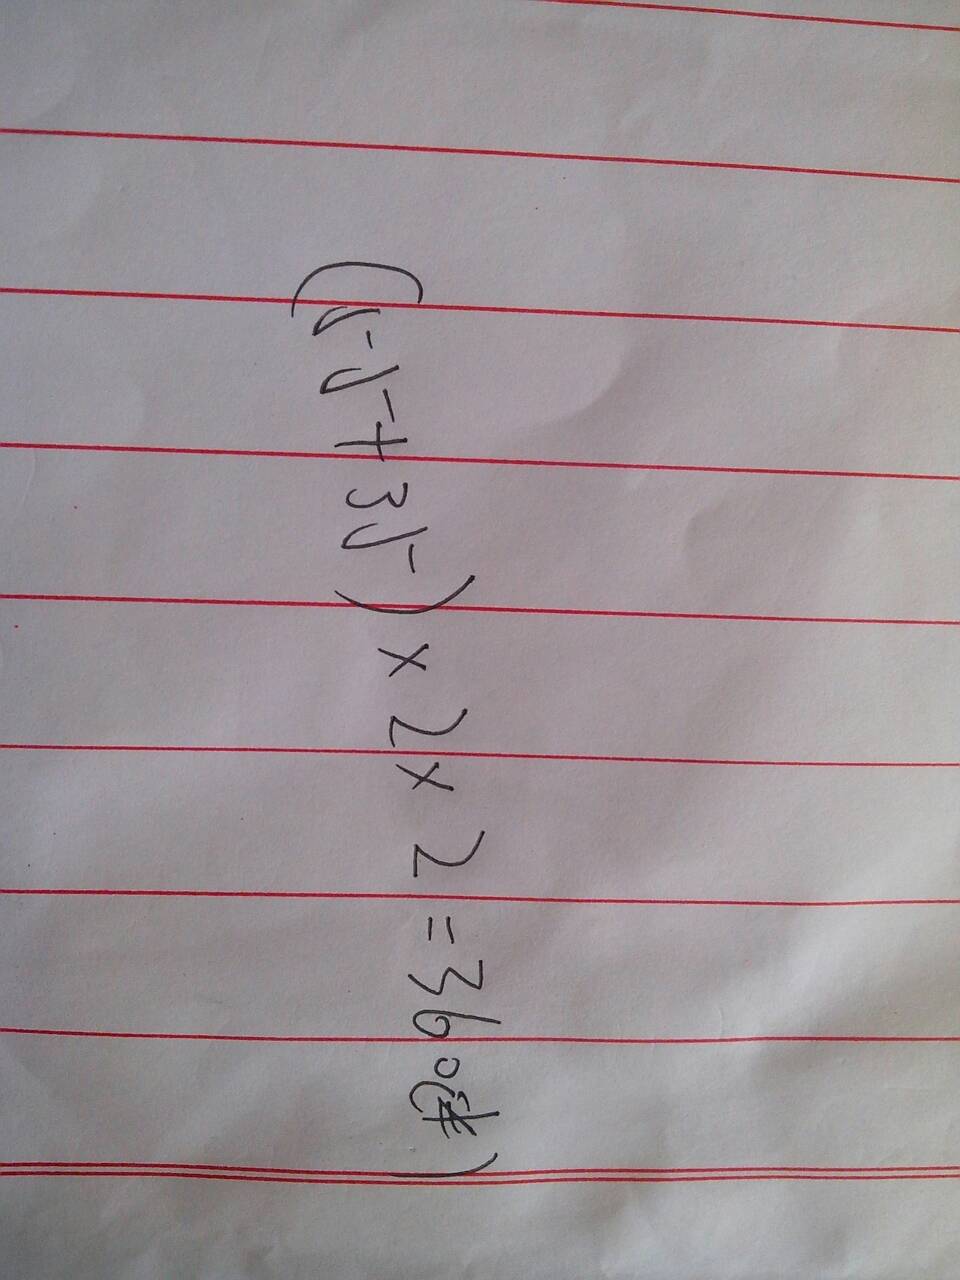 (55+35)×2×2=360( )